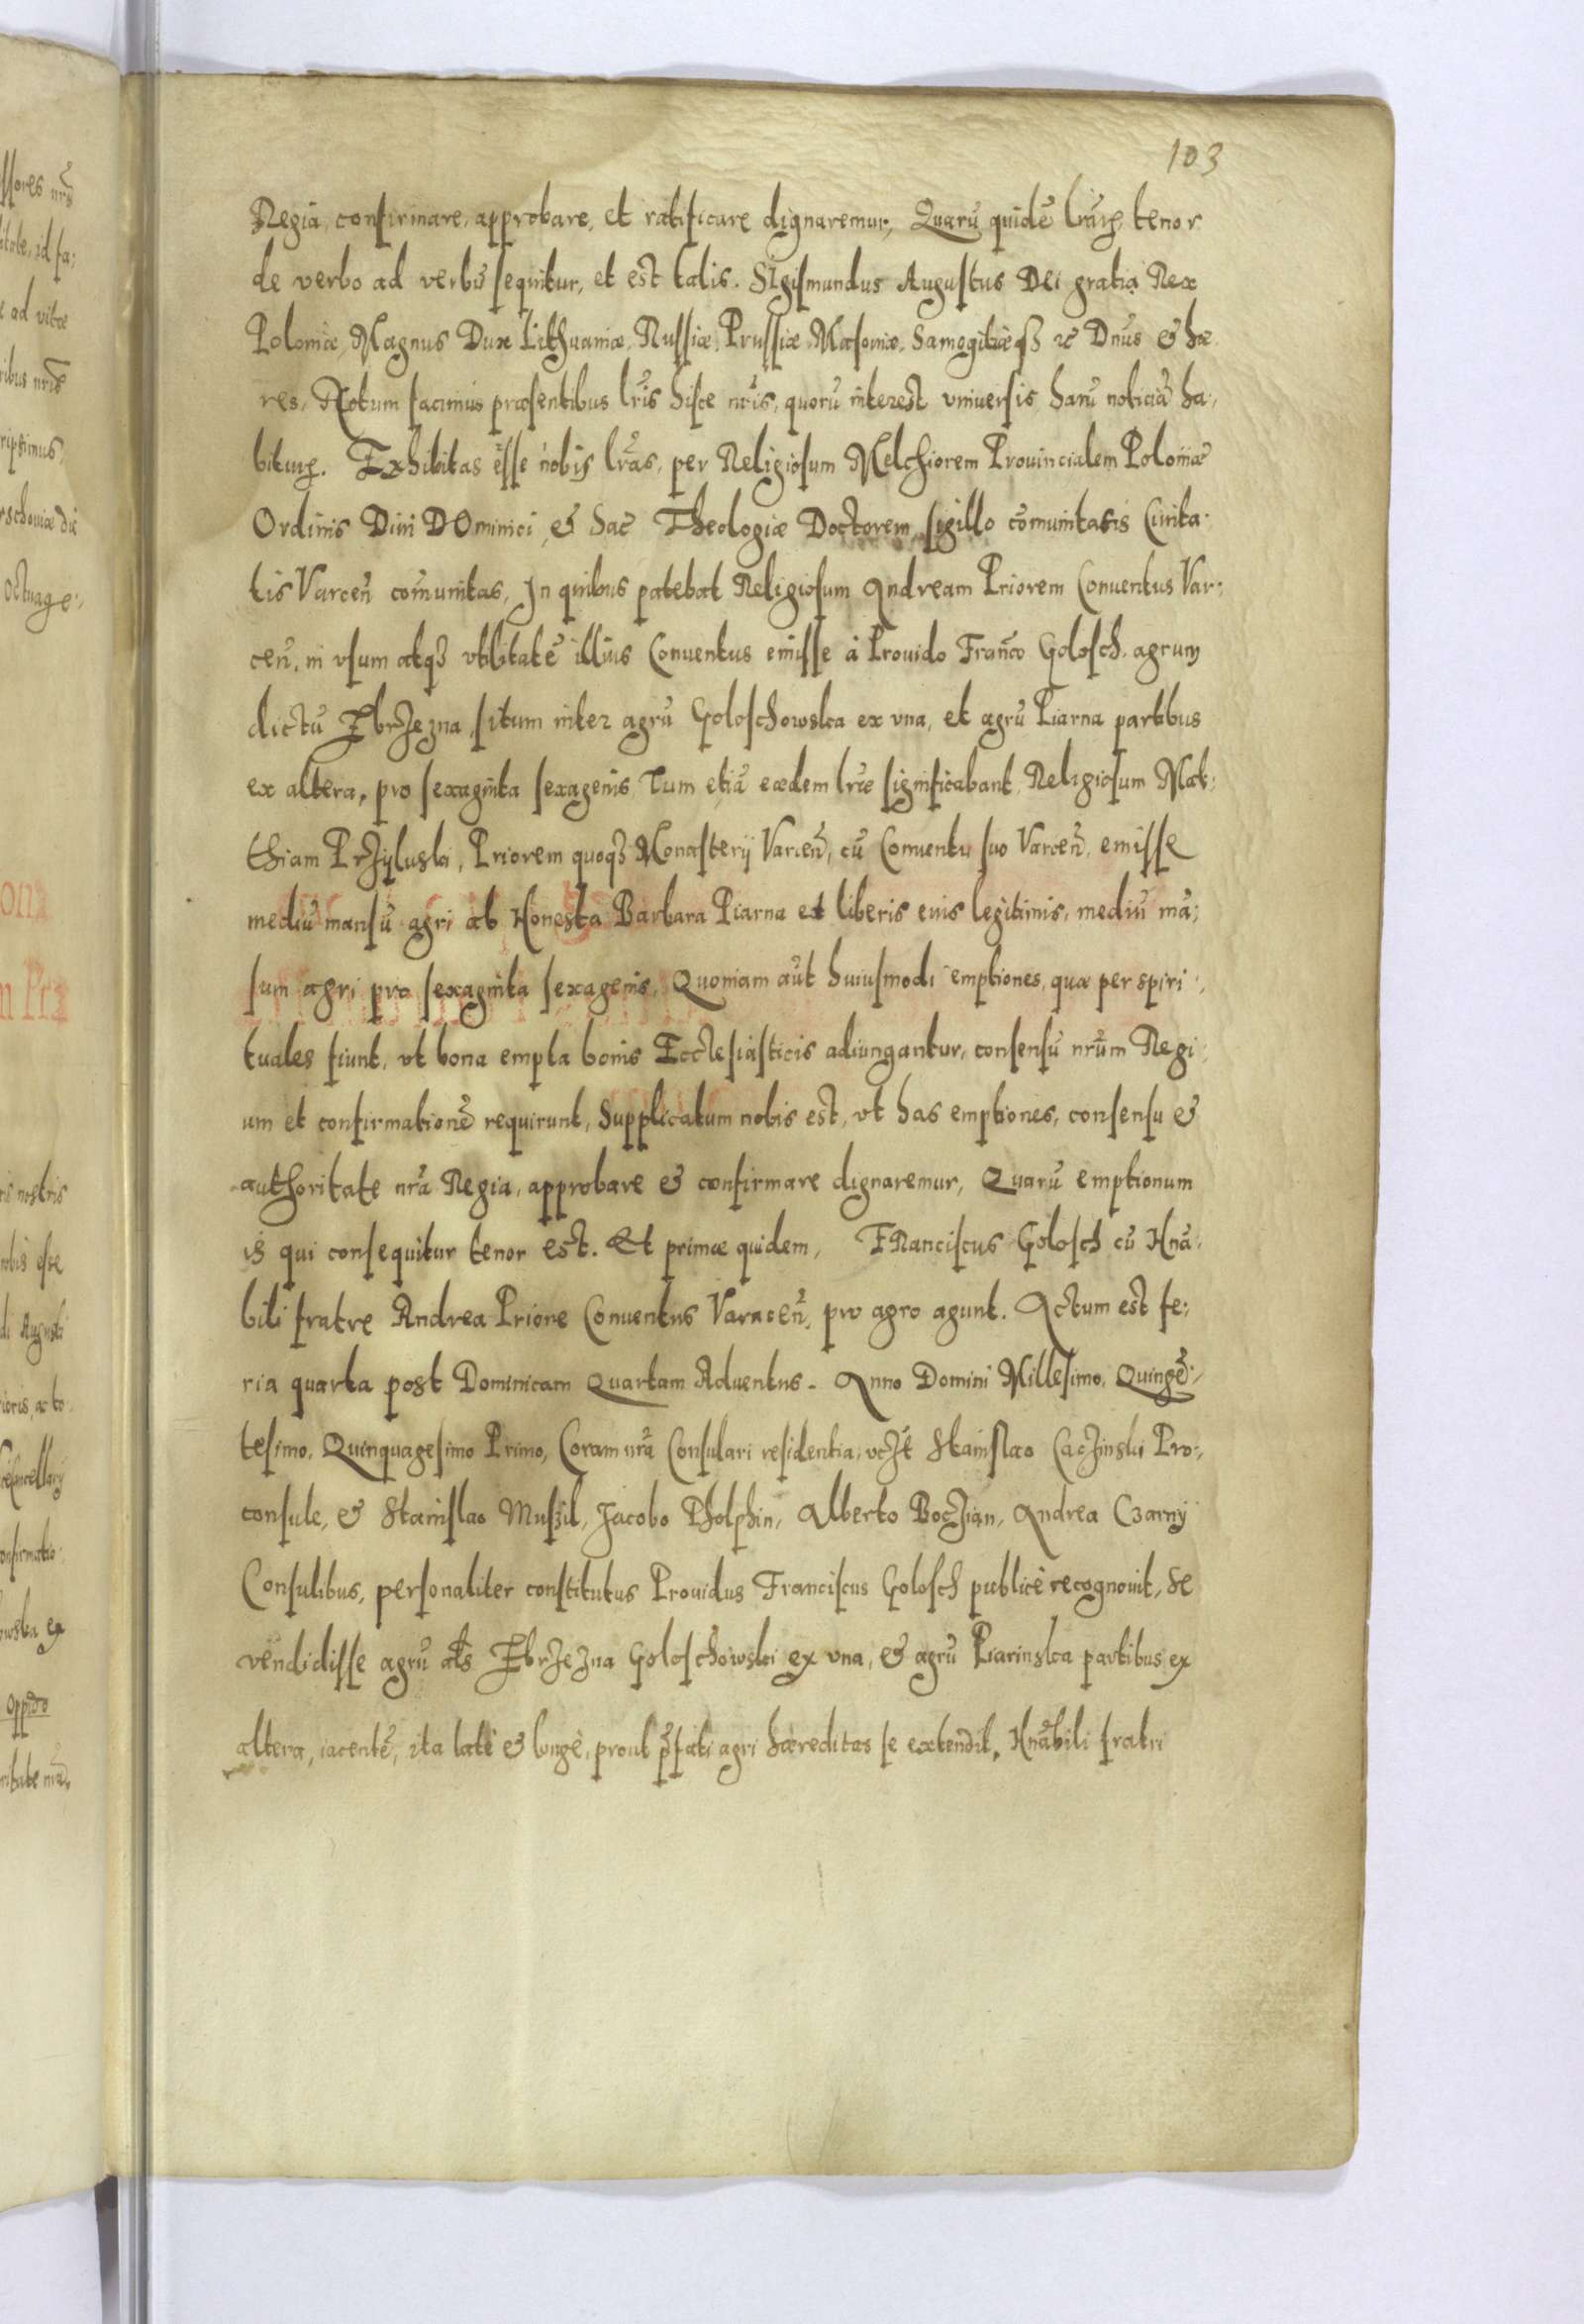 103
Regia, confirmare, approbare, et ratificare dignaremur, Quarũ quidẽ lrãrꝝ tenor
de verbo ad verbũ sequitur, et est talis. SIgismundus Augustus DEi gratia Rex
Poloniæ, Magnus Dux Lithuaniæ, Russiæ, Prussiæ, Masoniæ, Samogitiæqꝫ ꝛc Dnũs & hæ
res, Notum facimus præsentibus lrĩs hisce nrĩs, quorũ interest vniuersis harũ noticiã ha,
biturꝝ. Exhibitas esse nobis lrãs, per Religiosum Melchiorem Prouincialem Poloniæ
Ordinis Diui DOminici, & Sac Theologiæ Doctorem, sigillo cõmunitatis Ciuita:
tis Varceñ comunitas, In quibus patebat Religiosum Andream Priorem Conuentus Var:
ceñ, in vsum atqꝫ vtilitatẽ illius Conuentus emisse à Prouido Francõ Golosch. agrum
dictũ Zbrzezna, situm inter agrũ Goloschowska ex vna, et agrũ Piarna partibus
ex altera, pro sexaginta sexagenis, Tum etiã eædem lræ significabant, Religiosum Mat:
thiam Przijluski, Priorem quoqꝫ Monasterij Varceñ, cũ Conuentu suo Varceñ, emisse
mediũ mansũ agri ab Honesta Barbara Piarna et liberis euis legitimis, mediũ mã;
sum agri pro sexaginta sexagenis, Quoniam aũt huiusmodi emptiones, quæ per spiri:,
tuales fiunt, vt bona empta bonis Ecclesiasticis adiungantur, consensũ nrũm Regi:
um et confirmationẽ requirunt, Supplicatum nobis est, vt has emptiones, consensu &
authoritate nrã Regia, approbare & confirmare dignaremur, Quarũ emptionum
is qui consequitur tenor est. Et primæ quidem, FRanciscus Golosch cũ Hnã:
bili fratre Andrea Priore Conuentus Varaceñ, pro agro agunt. Actum est fe:
ria quarta post Dominicam Quartam Aduentus. Anno Domini Millesimo, Quingẽ:,
tesimo, Quinquagesimo Primo, Coram nrã Consulari residentia, vczt Stanislao Caczinski Pro:,
consule, & Stanislao Muszil, Jacobo Pholphin, Alberto Boczian, Andrea Czarny
Consulibus, personaliter constitutus Prouidus Franciscus Golosch publicè recognouit, se
vendidisse agrũ als Zbrzezna Goloschowski ex vna, & agrũ Piarinska partibus ex
altera, iacentẽ, ita latè & longè, prout pfati agri hæreditas se extendit, Hnãbili fratri